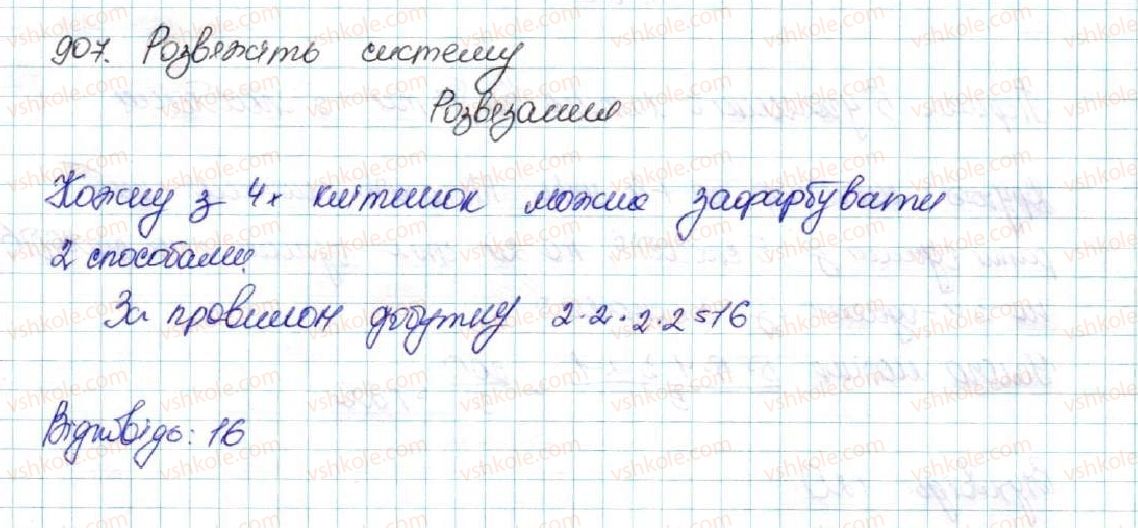 907. Розвяжіть систему
Розвязання
Кожну з 4х клітинок можна зафарбувати
2 способами.
За правилом добутку 2·2·2·2=16
Відповідь: 16